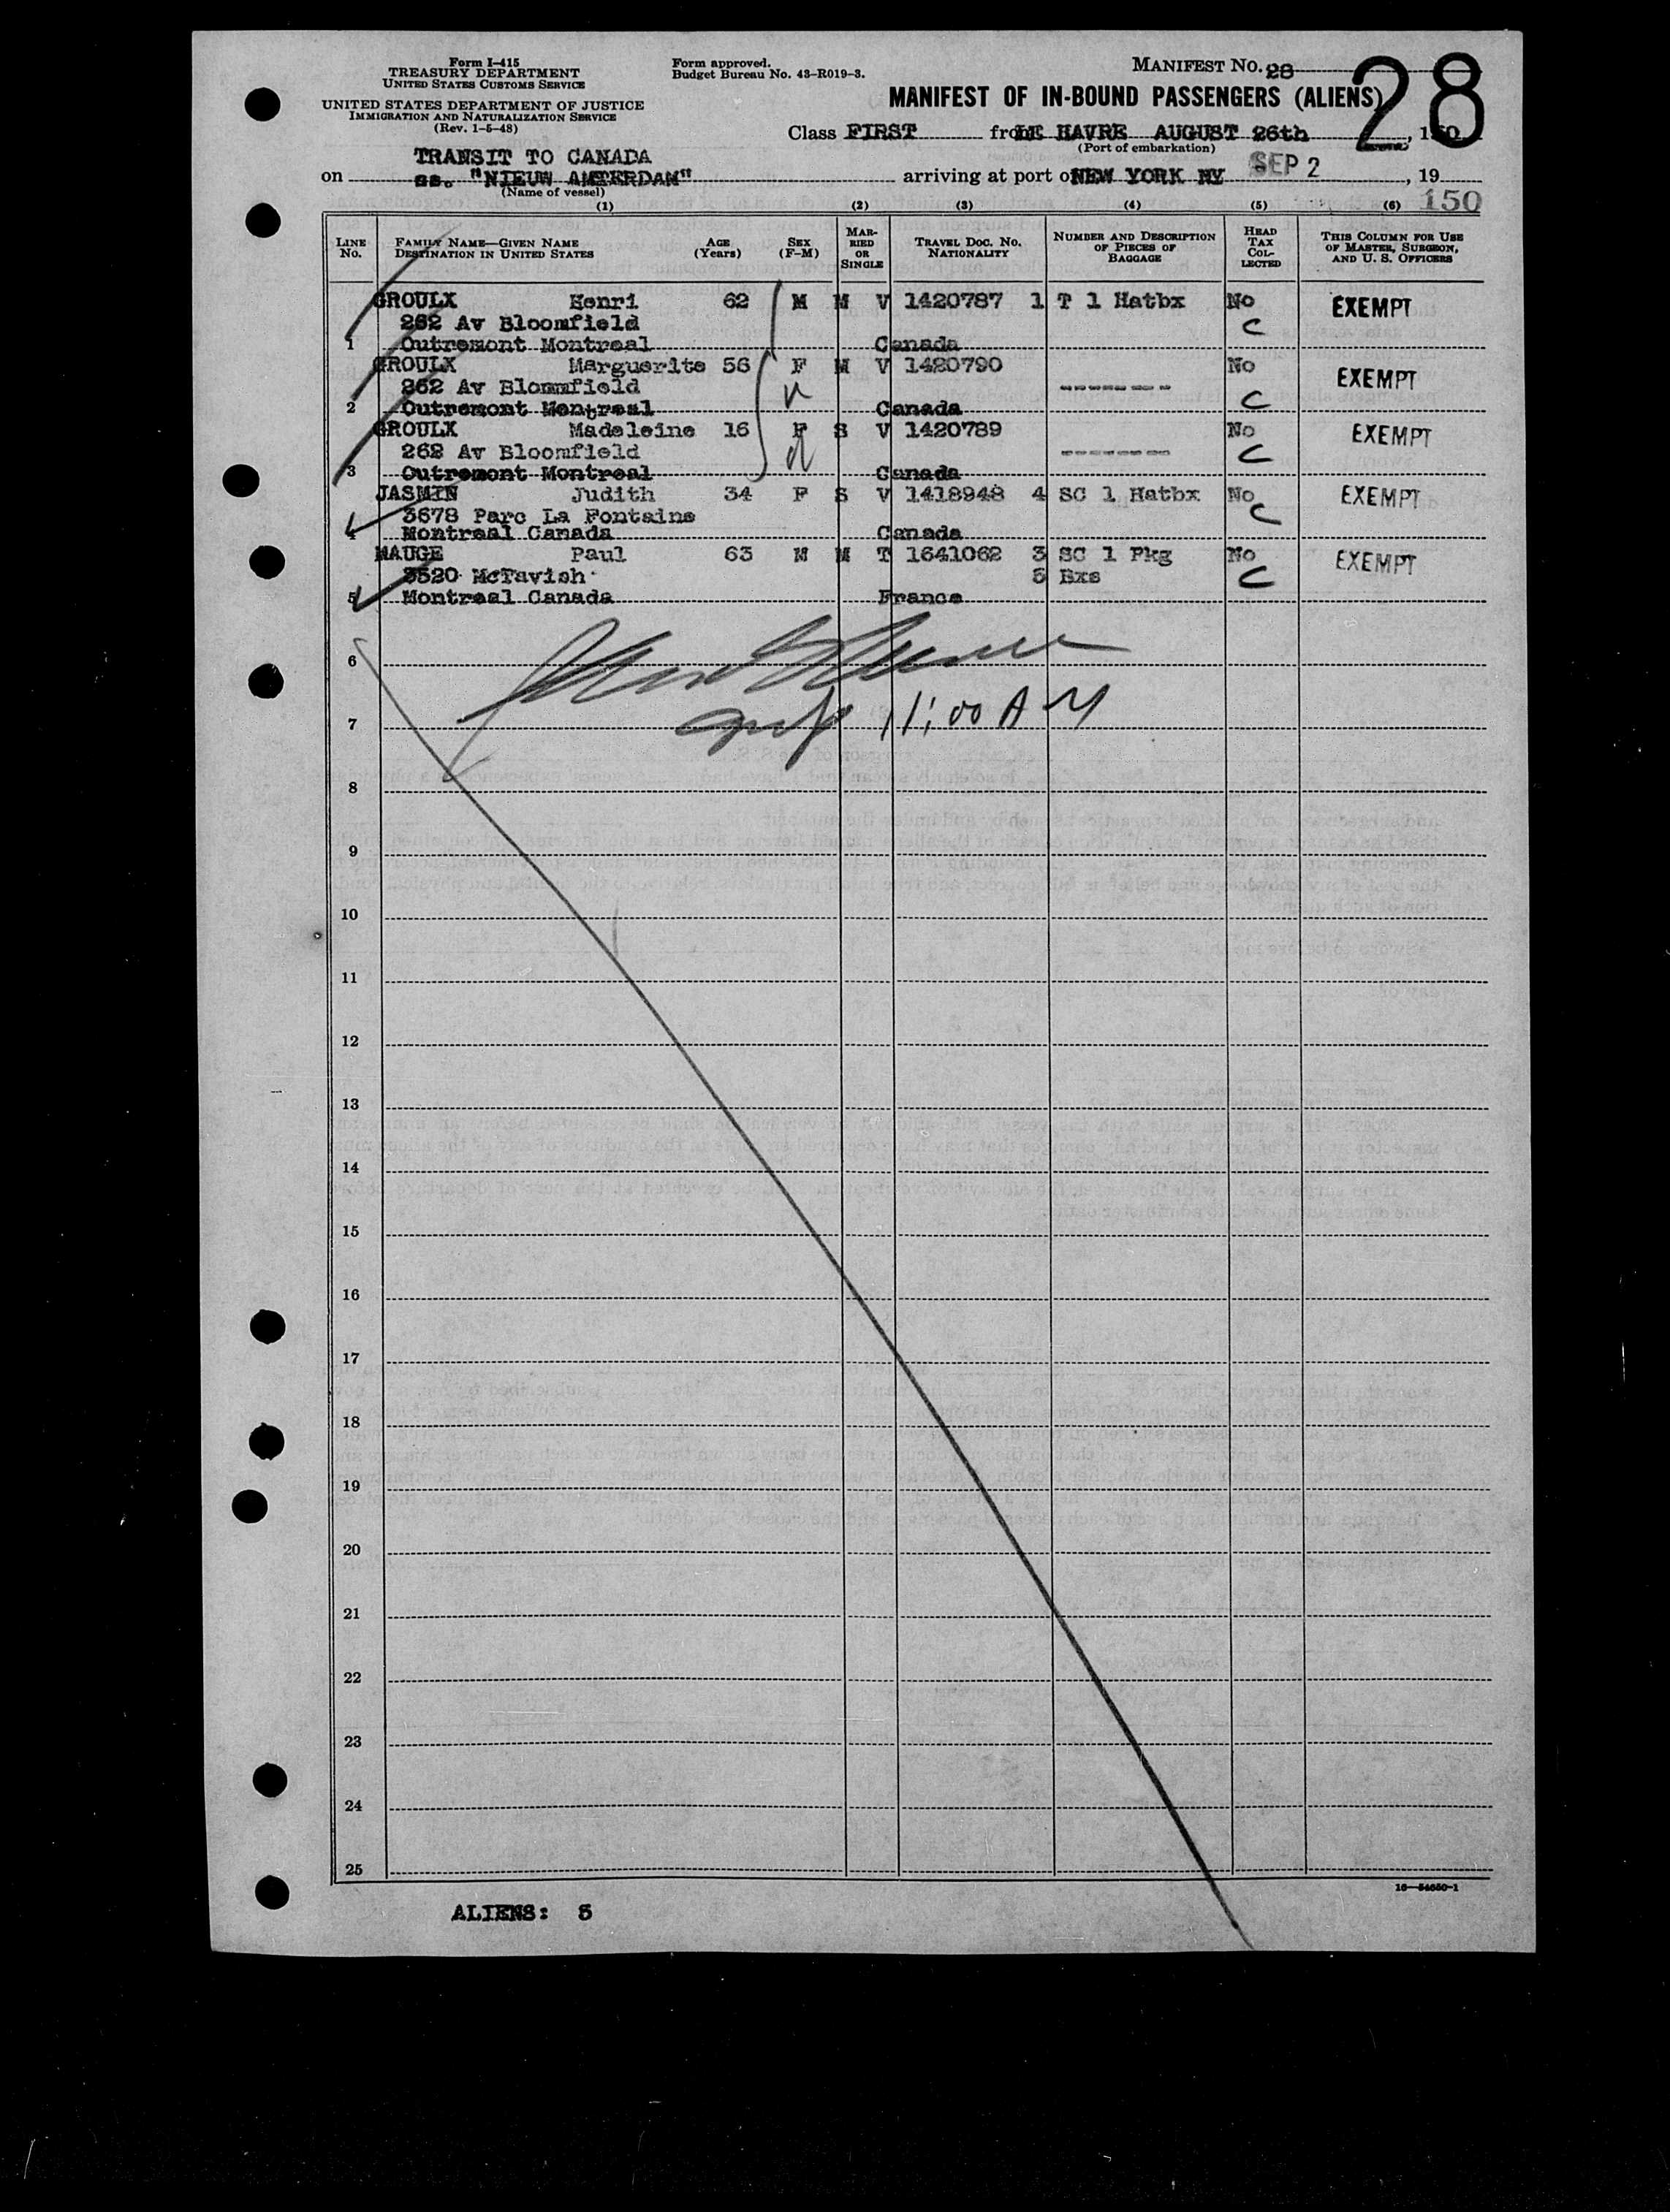 Form I-415
TREASURY DEPARTMENT
UNITED STATES CUSTOMS SERVICE
UNITED STATES DEPARTMENT OF JUSTICE
IMMIGRATION AND NATURALIZATION SERVICE
(Rev. 1-5-48)
Form approved.
Budget Bureau No. 43-R019-3.
MANIFEST NO. 28
28
MANIFEST OF IN-BOUND PASSENGERS (ALIENS)
Class FIRST from LE HAVRE AUGUST 26th, 150
(Port of embarkation)
TRANSIT TO CANADA
on ss. "NIEUW AMTERDAM" arriving at port of NEW YORK NY SEP 2, 19
(Name of vessel)
150
(1) (2) (3) (4) (5) (6)
LINE NO. FAMILY NAME—GIVEN NAME DESTINATION IN UNITED STATES AGE (Years) SEX (F-M) MARRIED OR SINGLE TRAVEL DOC. NO. NATIONALITY NUMBER AND DESCRIPTION OF PIECES OF BAGGAGE HEAD TAX COLLECTED THIS COLUMN FOR USE OF MASTER, SURGEON, AND U. S. OFFICERS
GROULX Henri 62 M M V 1420787 1 T 1 Hatbx No EXEMPT
262 Av Bloomfield C
1 Outremont Montreal Canada
GROULX Marguerite 56 F M V 1420790 No EXEMPT
262 Av Blommfield -------
2 Outremont Montreal Canada C
GROULX Madeleine 16 F S V 1420789 No EXEMPT
262 Av Bloomfield ------- C
3 Outremont Montreal Canada
JASMIN Judith 34 F S V 1418948 4 SC 1 Hatbx No EXEMPT
3678 Parc La Fontaine C
4 Montreal Canada Canada
MAUGE Paul 63 M M T 1641062 3 SC 1 Pkg No EXEMPT
3520 McTavish 5 Bxs C
5 Montreal Canada France
6
7 11:00 AM
8
9
10
11
12
13
14
15
16
17
18
19
20
21
22
23
24
25
16—54650-1
ALIENS: 5